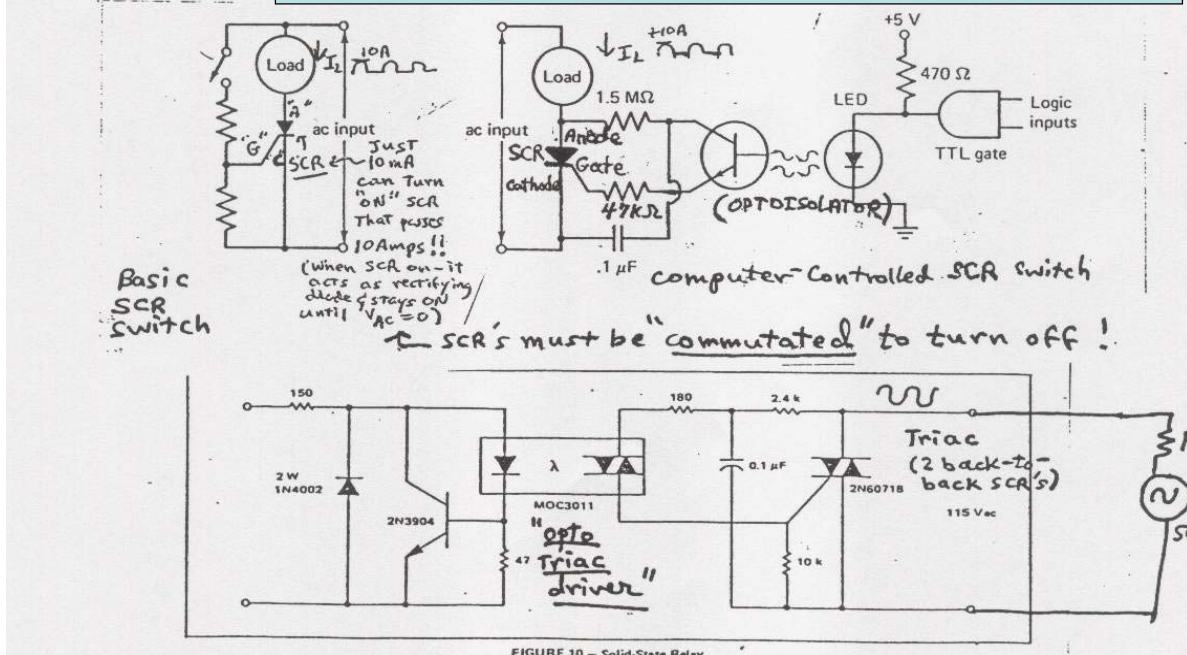 Load
↓ I_L
10A
"A"
"G"
SCR
ac input
JUST
10mA
can Turn
"ON" SCR
That passes
10 Amps!!
(when SCR on-it
acts as rectifying
diode & stays ON
until V_AC = 0)
Basic
SCR
switch
ac input
Load
↓ I_L
+10A
1.5 MΩ
Anode
SCR
Gate
Cathode
47KΩ
.1 µF
(OPTOISOLATOR)
LED
+5 V
470 Ω
Logic
inputs
TTL gate
computer-Controlled SCR Switch
← SCR's must be "commutated" to turn off!
150
2 W
1N4002
2N3904
λ
MOC3011
47
"opto
Triac
driver"
180
2.4 k
0.1 µF
10 k
2N6071B
Triac
(2 back-to-
back SCR's)
115 Vac
FIGURE 10 — Solid-State Relay